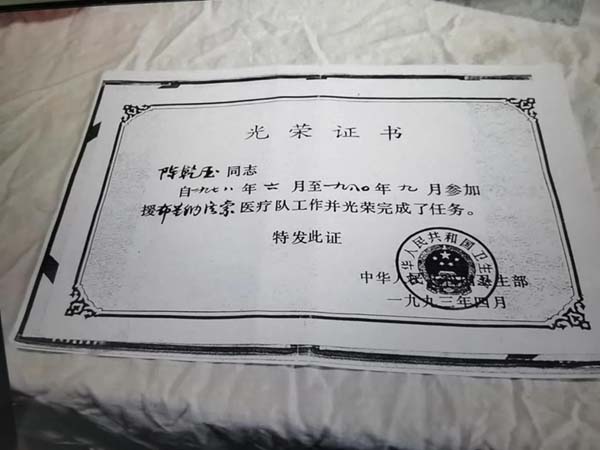 光荣证书
陈乾玉同志
自一九七八年六月至一九八〇年九月参加
援布基纳法索医疗队工作并光荣完成了任务。
特发此证
中华人民共和国卫生部
中华人民共和国卫生部
一九九三年四月